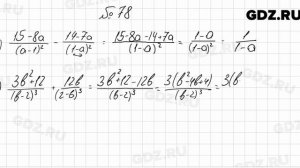 GDZ.RU
№ 78
) \frac{15-8a}{(a-1)^2} - \frac{14-7a}{(1-a)^2} = \frac{15-8a-14+7a}{(1-a)^2} = \frac{1-a}{(1-a)^2} = \frac{1}{1-a}
) \frac{3b^2+12}{(b-2)^3} + \frac{12b}{(2-b)^3} = \frac{3b^2+12-12b}{(b-2)^3} = \frac{3(b^2-4b+4)}{(b-2)^3} = 3(b
GDZ.RU